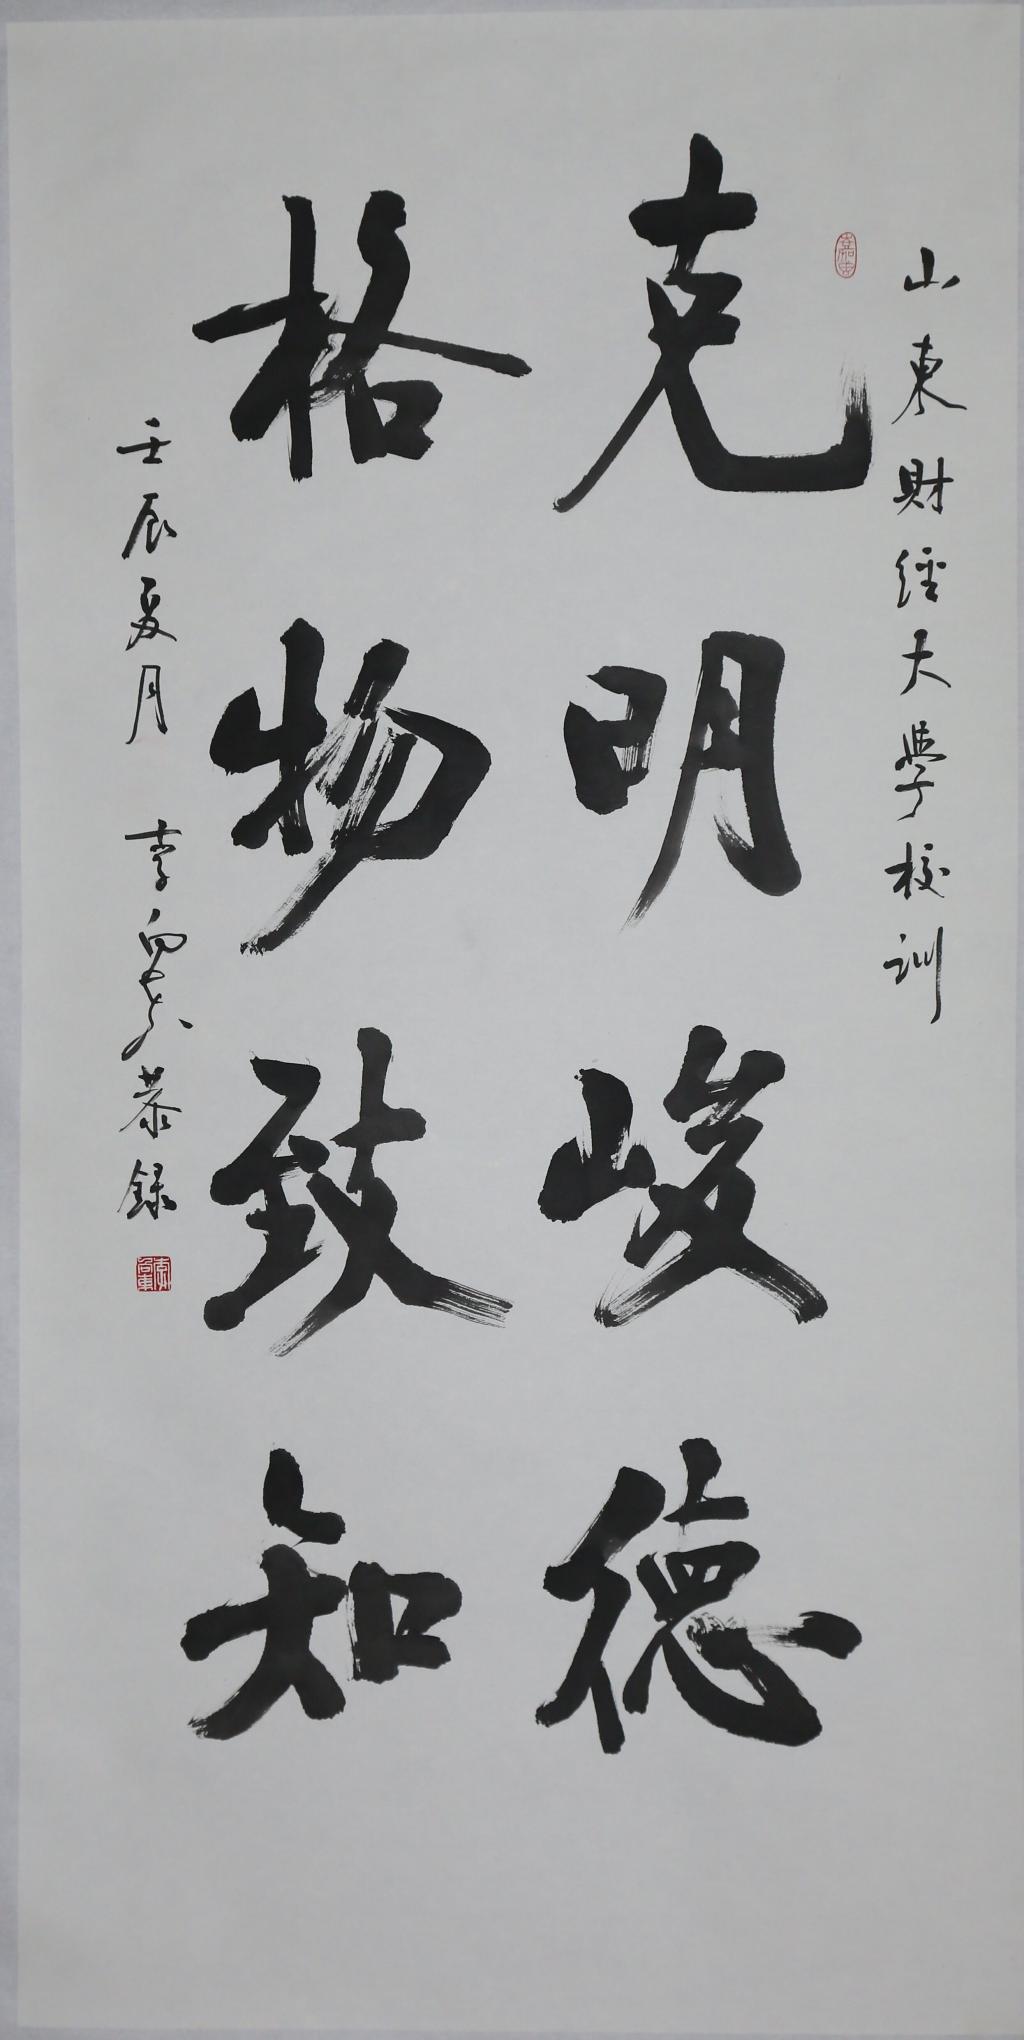 山東財經大學校训
克明峻德
格物致知
壬辰夏月 李向東恭録